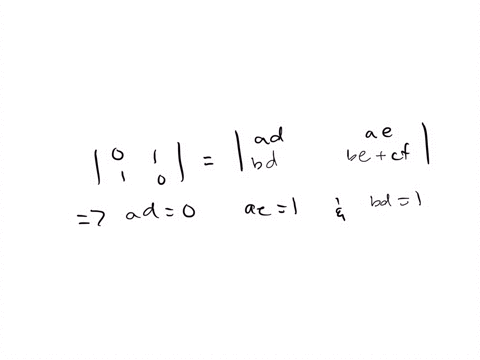 | 0 1 | = | ad ae |
| 1 0 | | bd be + cf |
=> ad = 0 ae = 1 & bd = 1